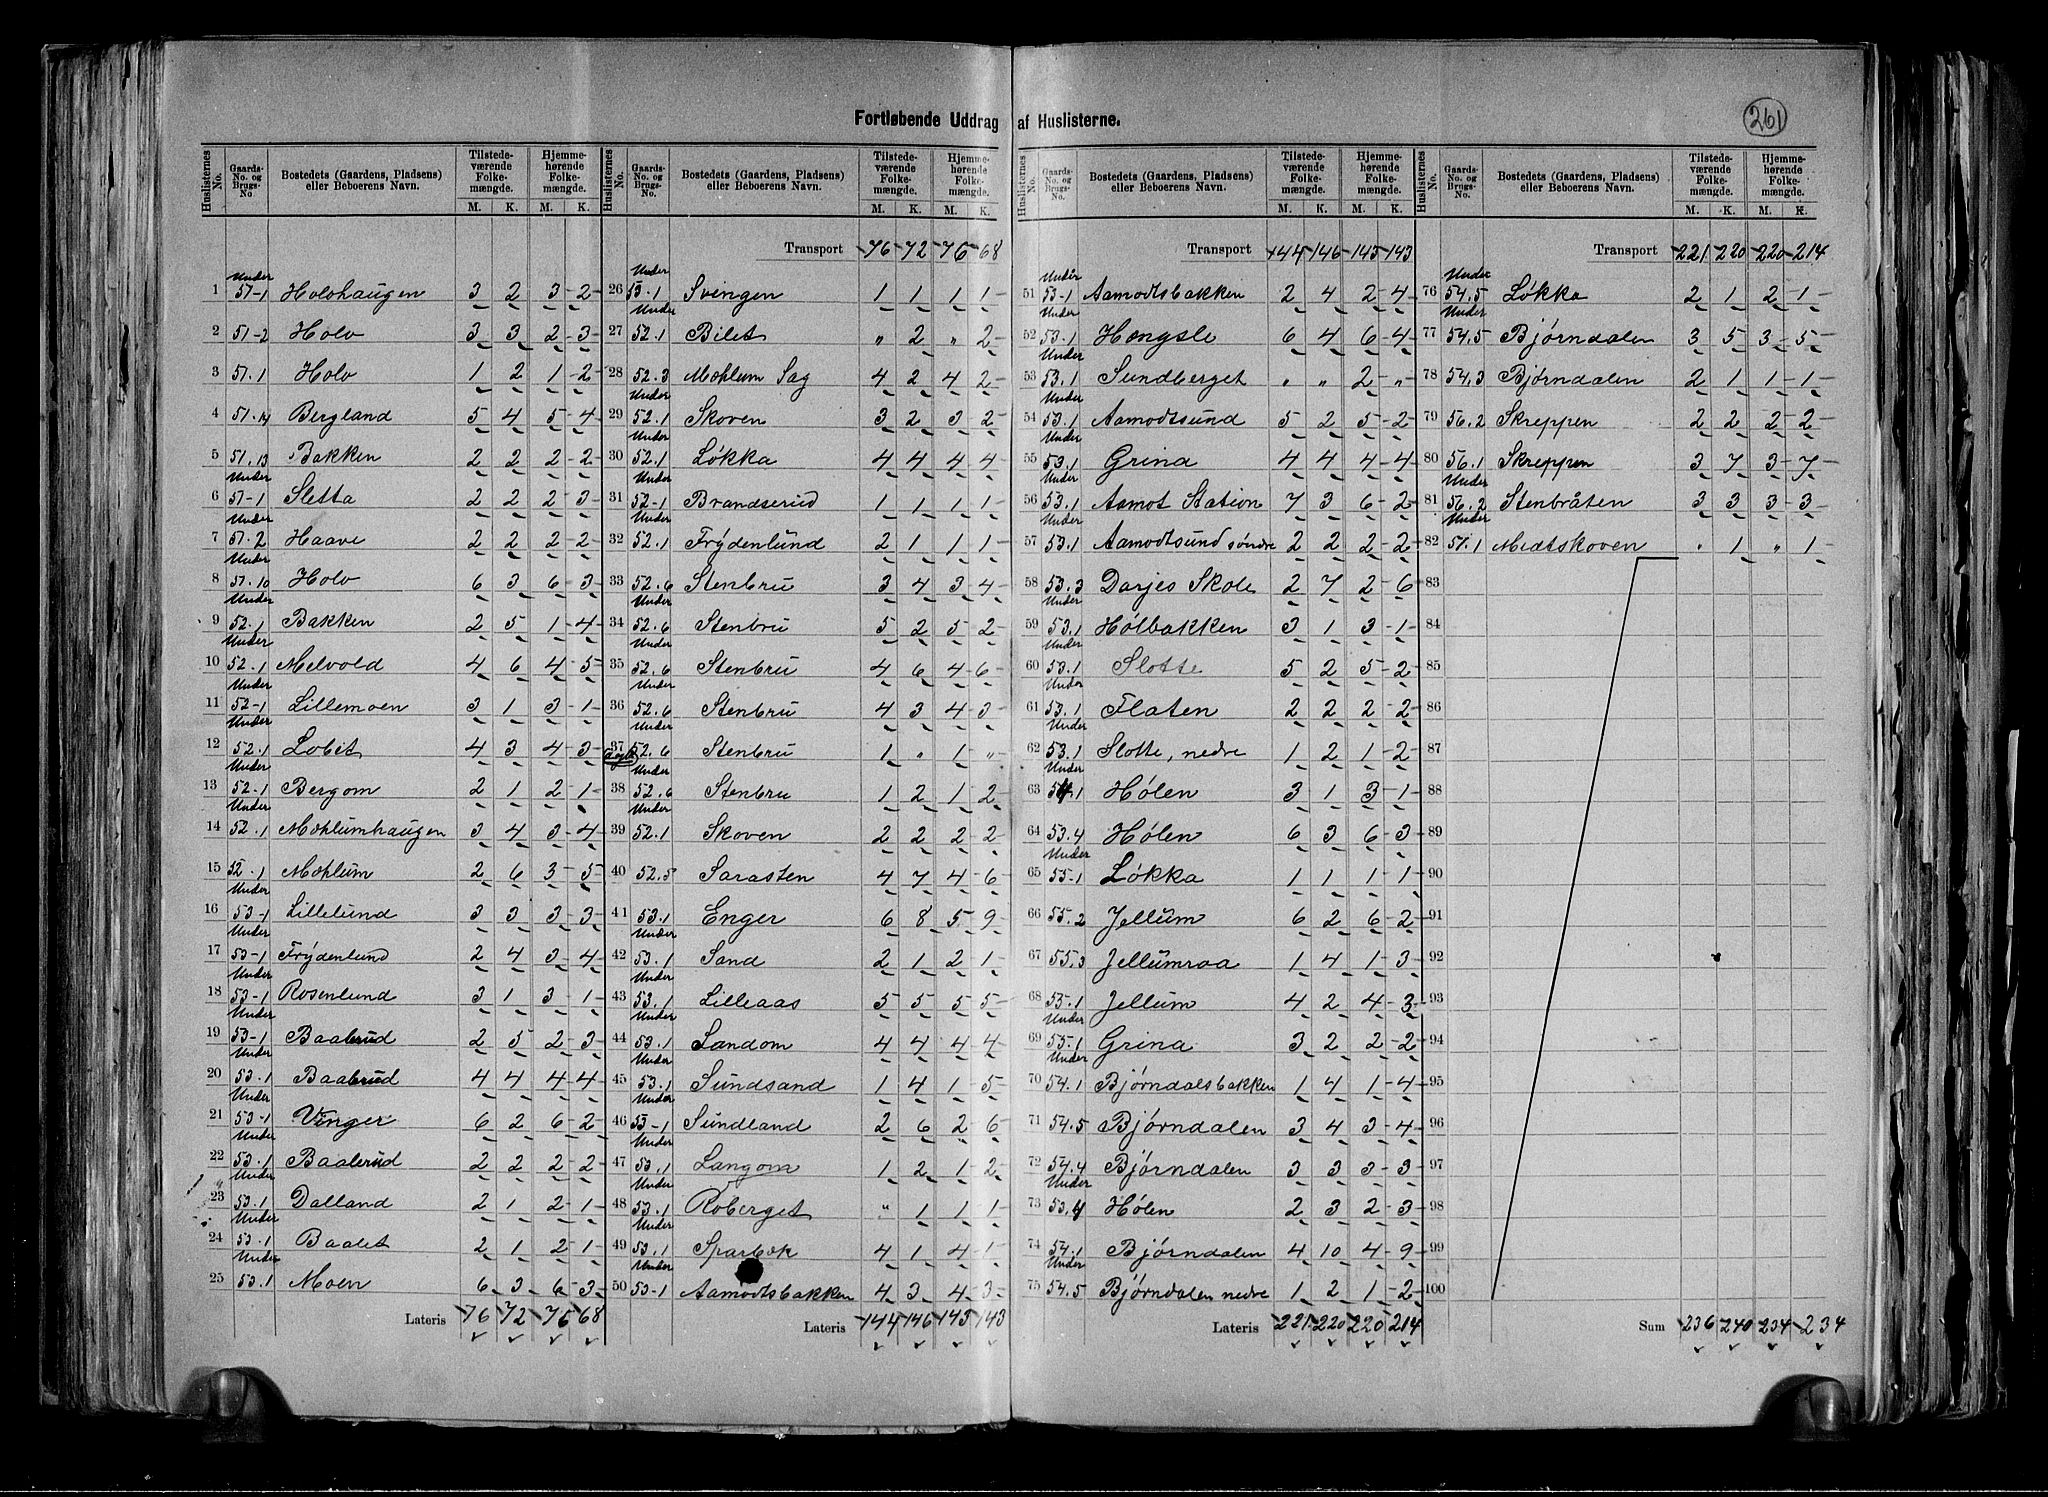 Fortløbende Uddrag af Huslisterne.
261
Huslisternes No. Gaards-No. og Brugs-No Bostedets (Gaardens, Pladsens) eller Beboerens Navn. Tilstedeværende Folkemængde. M. K. Hjemmehørende Folkemængde. M. K.
1 Under 51-1 Holohaugen 3 2 3 2
2 51-2 Holo 3 3 2 3
3 51.1 Holo 1 2 1 2
4 51.14 Bergland 5 4 5 4
5 51.13 Bakken 2 2 2 2
6 Under 51-1 Sletta 2 2 2 3
7 Under 51.2 Haave 2 2 2 2
8 Under 51.10 Holo 6 3 6 3
9 Under 52.1 Bakken 2 5 1 4
10 Under 52.1 Melvold 4 6 4 5
11 Under 52-1 Lillemoen 3 1 3 1
12 Under 52.1 Lobit 4 3 4 3
13 Under 52-1 Bergom 2 1 2 1
14 Under 52.1 Mæhlumhaugen 3 4 3 4
15 52.1 Mæhlum 2 6 3 5
16 Under 53-1 Lillelund 3 3 3 3
17 Under 53-1 Frydenlund 2 4 3 4
18 Under 53-1 Rosenlund 3 1 3 1
19 Under 53-1 Baalerud 2 5 2 3
20 Under 53.1 Baalerud 4 4 4 4
21 Under 53-1 Vinger 6 2 6 2
22 Under 53.1 Baalerud 2 2 2 2
23 Under 53.1 Dalland 2 1 2 1
24 Under 53.1 Baalet 2 1 2 1
25 Under 53.1 Moen 6 3 6 3
Lateris 76 72 75 68
Huslisternes No. Gaards-No. og Brugs-No. Bostedets (Gaardens, Pladsens) eller Beboerens Navn. Tilstedeværende Folkemængde. M. K. Hjemmehørende Folkemængde. M. K.
Transport 76 72 75 68
26 Under 53.1 Svingen 1 1 1 1
27 Under 52.1 Bilet " 2 " 2
28 52.3 Mæhlum Sag 4 2 4 2
29 Under 52.1 Skoven 3 2 3 2
30 Under 52.1 Løkka 4 4 4 4
31 Under 52-1 Brandserud 1 1 1 1
32 Under 52.1 Frydenlund 2 1 1 1
33 52.6 Stenbru 3 4 3 4
34 Under 52.6 Stenbru 5 2 5 2
35 Under 52.6 Stenbru 4 6 4 6
36 Under 52.6 Stenbru 4 3 4 3
37 Under 52.6 Stenbru 1 " 1 "
38 Under 52.6 Stenbru 1 2 1 2
39 Under 52.1 Skoven 2 2 2 2
40 52.5 Sarasten 4 7 4 6
41 53.1 Enger 6 8 5 9
42 Under 53.1 Sand 2 1 2 1
43 Under 53.1 Lilleaas 5 5 5 5
44 Under 53.1 Sandom 4 4 4 4
45 Under 53.1 Sundsand 1 4 1 5
46 53-1 Sundland 2 6 2 6
47 Under 53.1 Langom 1 2 1 2
48 Under 53.1 Roberget " 1 1 1
49 Under 53.1 Sparbæk 4 1 4 1
50 Under 53-1 Aamodtsbakken 4 3 4 3
Lateris 144 146 143 143
Huslisternes No. Gaards-No. og Brugs-No. Bostedets (Gaardens, Pladsens) eller Beboerens Navn. Tilstedeværende Folkemængde. M. K. Hjemmehørende Folkemængde. M. K.
Transport 144 146 143 143
51 Under 53-1 Aamodtsbakken 2 4 2 4
52 53.1 Hængsle 6 4 6 4
53 Under 53.1 Sundberget " " 2 "
54 53.1 Aamodtsund 5 2 5 2
55 Under 53.1 Grina 4 4 4 4
56 Under 53.1 Aamot Station 7 3 6 2
57 Under 53.1 Aamodtsund søndre 2 2 2 2
58 53.3 Darjes Skole 2 7 2 6
59 Under 53.1 Hølbakken 3 1 3 1
60 53.1 Slotte 5 2 5 2
61 Under 53.1 Flaten 2 2 2 2
62 Under 53.1 Slotte, nedre 1 2 1 2
63 Under 54.1 Hølen 3 1 3 1
64 53.4 Hølen 6 3 6 3
65 Under 55-1 Løkka 1 1 1 1
66 55.2 Jellum 6 2 6 2
67 55.3 Jellumroa 1 4 1 3
68 55.1 Jellum 4 2 4 3
69 Under 55.1 Grina 3 2 2 2
70 Under 54.1 Bjørndalsbakken 1 4 1 4
71 54.5 Bjørndalen 3 4 3 4
72 54.4 Bjørndalen 3 3 3 3
73 Under 53.4 Hølen 2 3 2 3
74 54.1 Bjørndalen 4 10 4 9
75 Under 54.5 Bjørndalen nedre 1 2 1 2
Lateris 221 220 220 214
Huslisternes No. Gaards-No. og Brugs-No. Bostedets (Gaardens, Pladsens) eller Beboerens Navn. Tilstedeværende Folkemængde. M. K. Hjemmehørende Folkemængde. M. K.
Transport 221 220 220 214
76 Under 54.5 Løkka 2 1 2 1
77 Under 54.5 Bjørndalen 3 5 3 5
78 54.3 Bjørndalen 2 1 1 1
79 56.2 Skreppen 2 2 2 2
80 56.1 Skreppen 3 7 3 7
81 Under 56.2 Stenbråten 3 3 3 3
82 Under 51.1 Mælskoven " 1 " 1
83
84
85
86
87
88
89
90
91
92
93
94
95
96
97
98
99
100
Sum 236 240 234 234